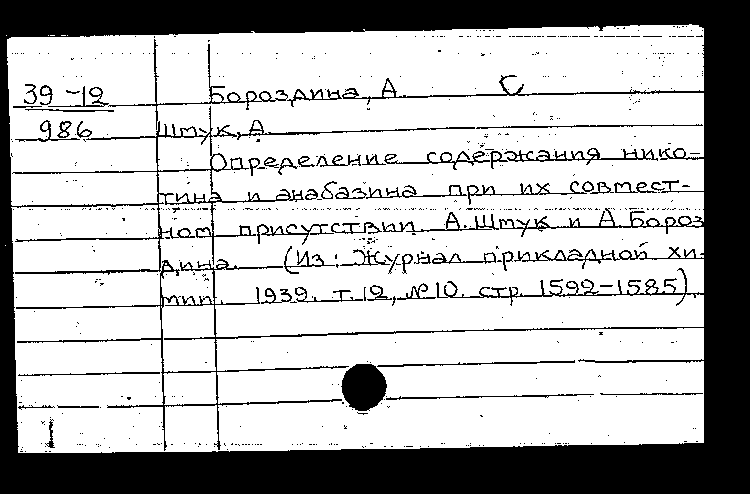 39-12 Бороздина, А. С
986 Штук, А.
Определение содержания нико-
тина и анабазина при их совмест-
ном присутствии. А. Штук и А. Бороз
дина. (Из: Журнал прикладной хи-
мии. 1939. т. 12, №10. стр. 1592-1585).